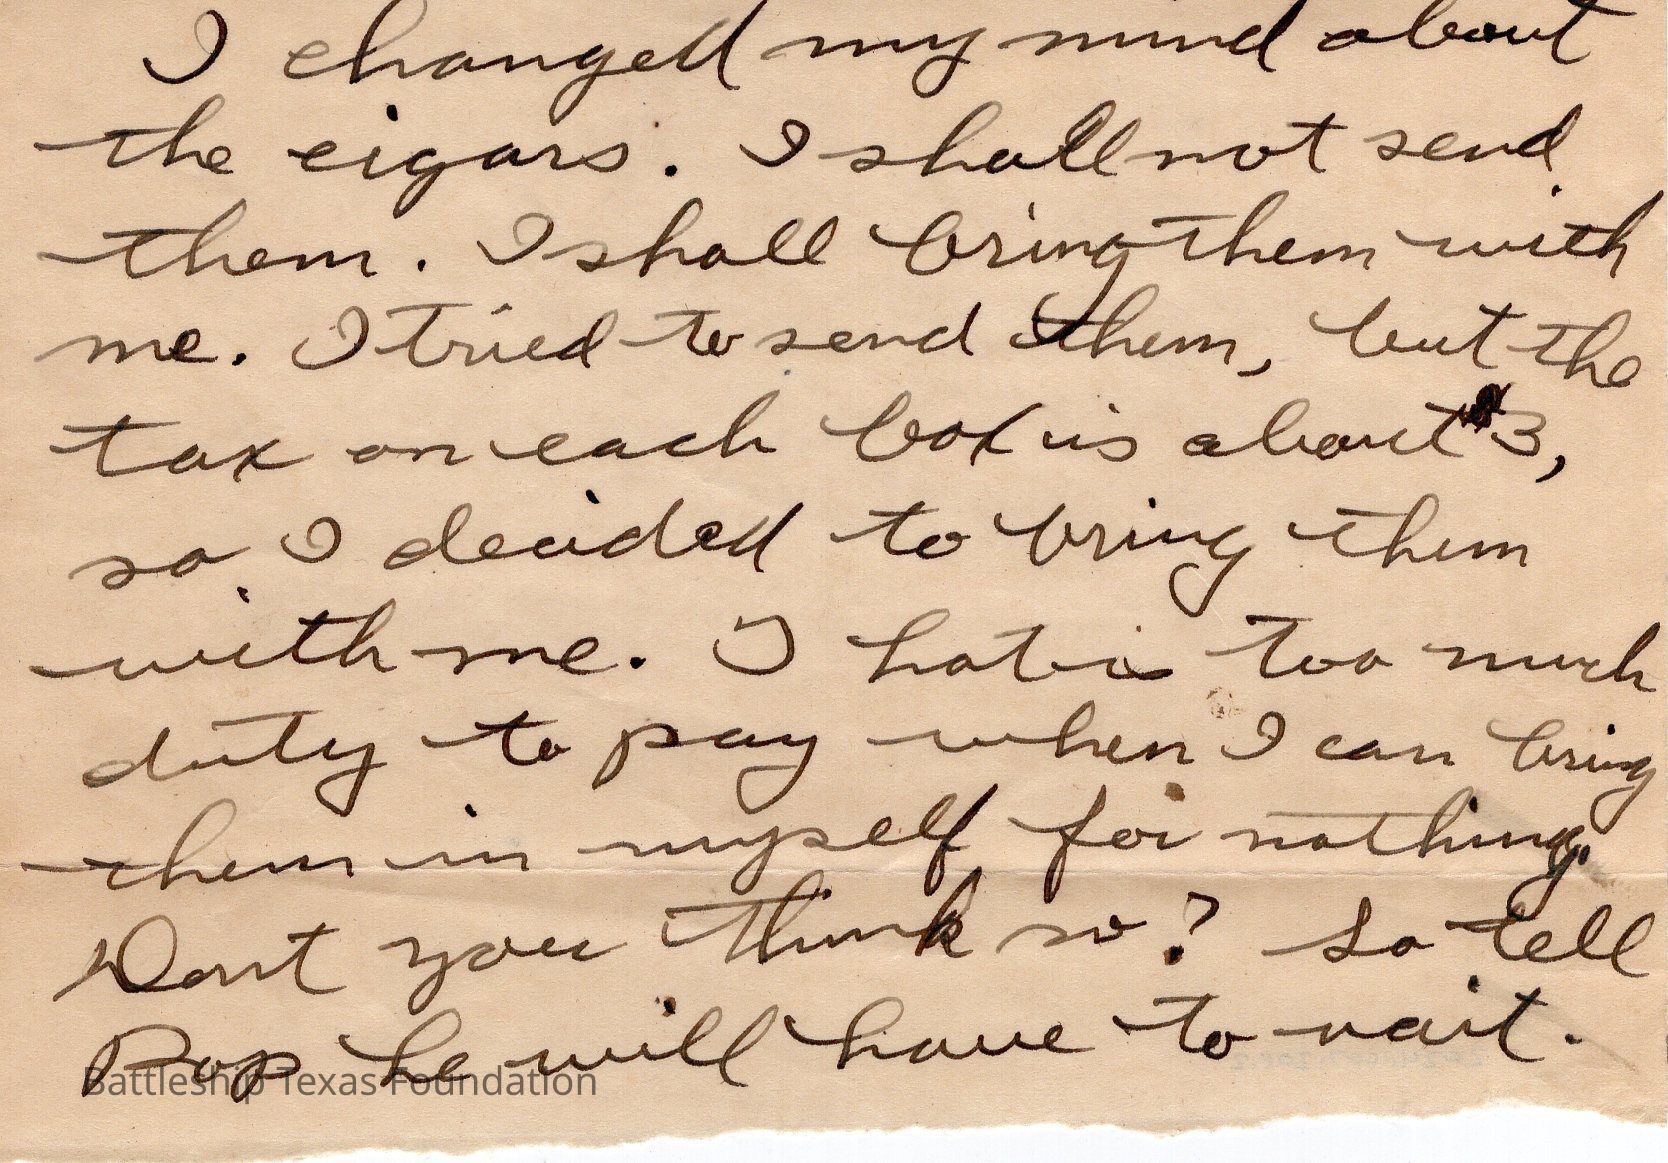 I changed my mind about
the cigars. I shall not send
them. I shall bring them with
me. I tried to send them, but the
tax on each box is about $3,
so I decided to bring them
with me. I that is too much
duty to pay when I can bring
them in myself for nothing.
Dont you think so? So tell
Pop he will have to wait.
Battleship Texas Foundation